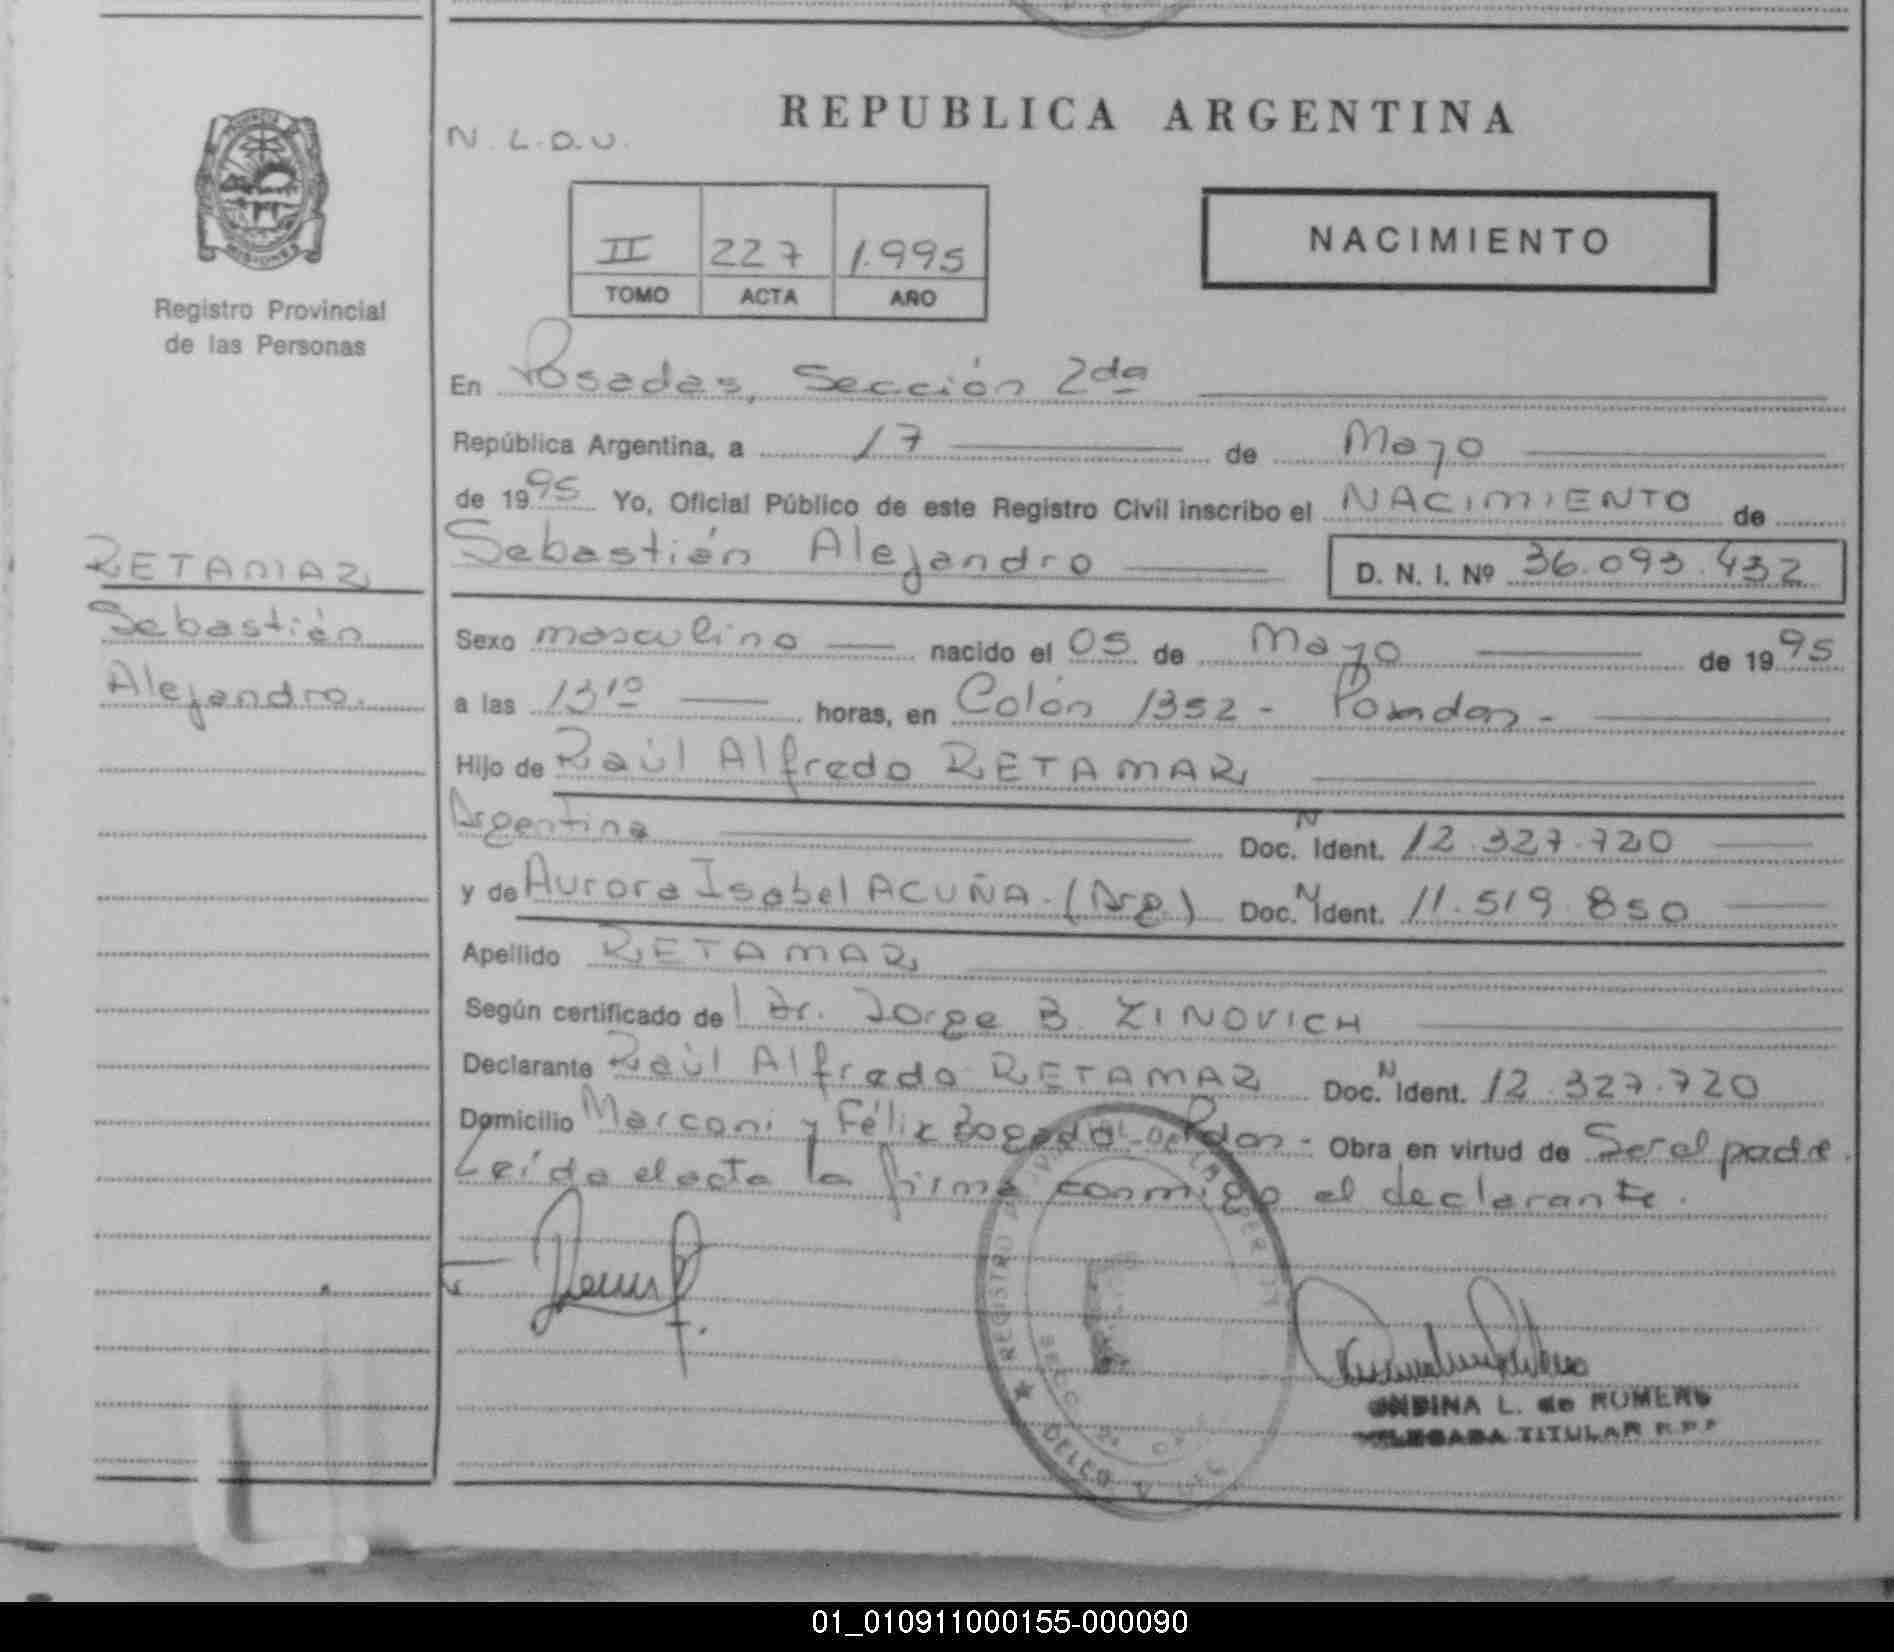 REPUBLICA ARGENTINA
N. L. D. U.
II 227 1.995
TOMO ACTA AÑO
NACIMIENTO
Registro Provincial
de las Personas
En Posadas, Sección 2da
República Argentina, a 17 de Mayo
de 1995 Yo, Oficial Público de este Registro Civil inscribo el NACIMIENTO de
Sebastián Alejandro D. N. I. Nº 36.093.432
RETAMAR
Sebastián
Alejandro.
Sexo masculino nacido el 05 de Mayo de 1995
a las 13¹⁰ horas, en Colón 1352 - Posadas -
Hijo de Raúl Alfredo RETAMAR
Argentina Doc. N Ident. 12.327.720
y de Aurora Isabel ACUÑA. (Arg.) Doc. N Ident. 11.519.850
Apellido RETAMAR
Según certificado del Dr. Jorge B. ZINOVICH
Declarante Raúl Alfredo RETAMAR Doc. N Ident. 12.327.720
Domicilio Marconi y Félix Bogado - Pdas - Obra en virtud de Ser el padre.
Leída el acta la firma conmigo el declarante.
REGISTRO
ONDINA L. de ROMERO
DELEGADA TITULAR R.P.P
01_010911000155-000090